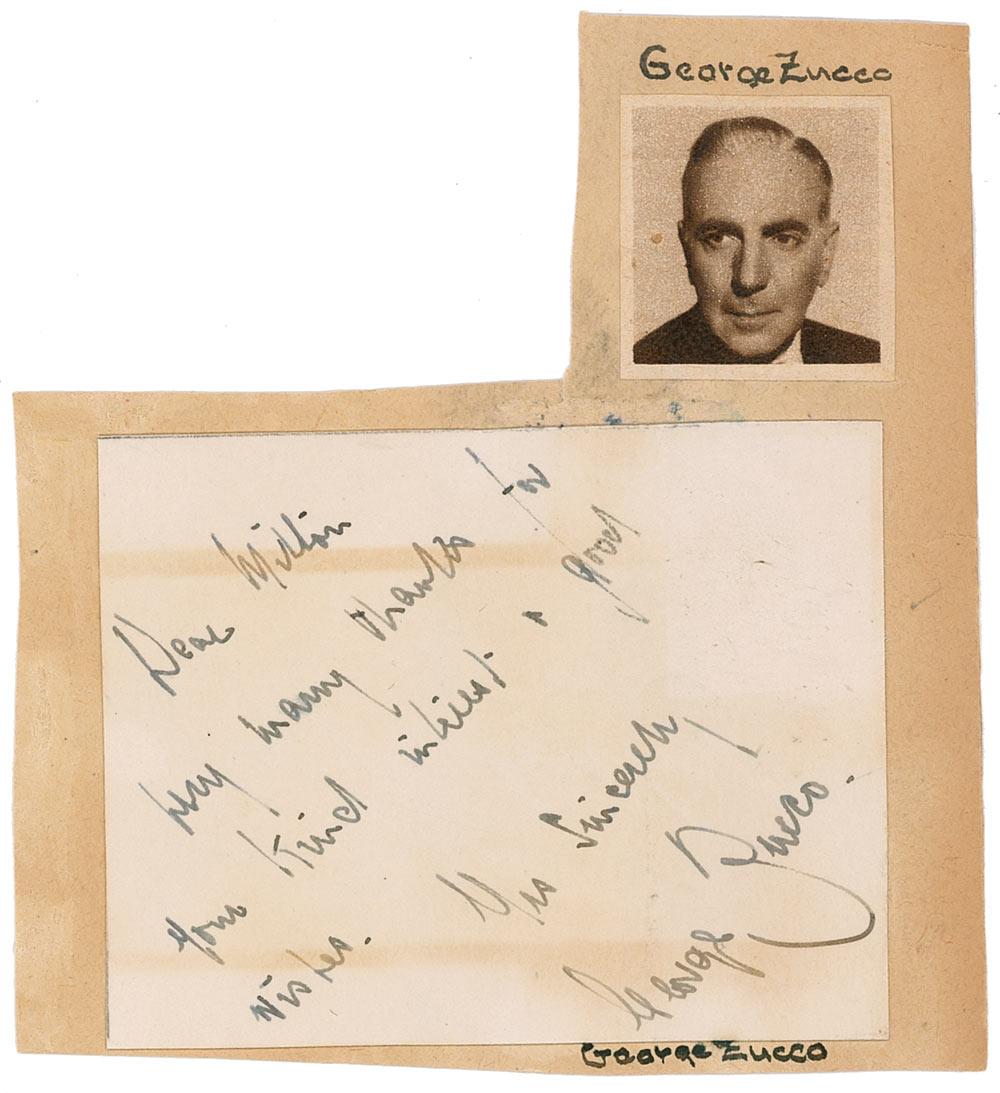 George Zucco
Dear Milton
Very many thanks for
your kind interest & good
wishes.
Yrs Sincerely
George Zucco.
George Zucco